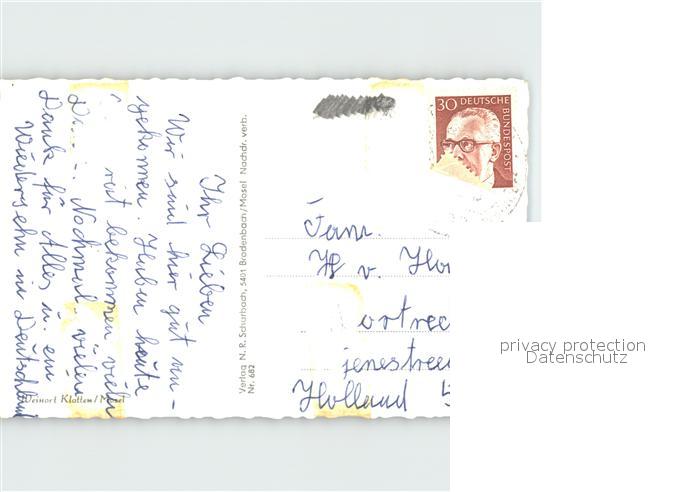 Ihr Lieben
Wir sind hier gut an-
gekommen. Haben heute
bekommen viele
Nochmal vielen
Dank für Alles u. ein
Wiedersehn in Deutschland
Weinort Klotten/Mosel
Verlag N. R. Schurbach, 5401 Brodenbach/Mosel Nachdr. verb.
Nr. 682
30 DEUTSCHE
BUNDESPOST
Fam.
v.
Holland
privacy protection
Datenschutz